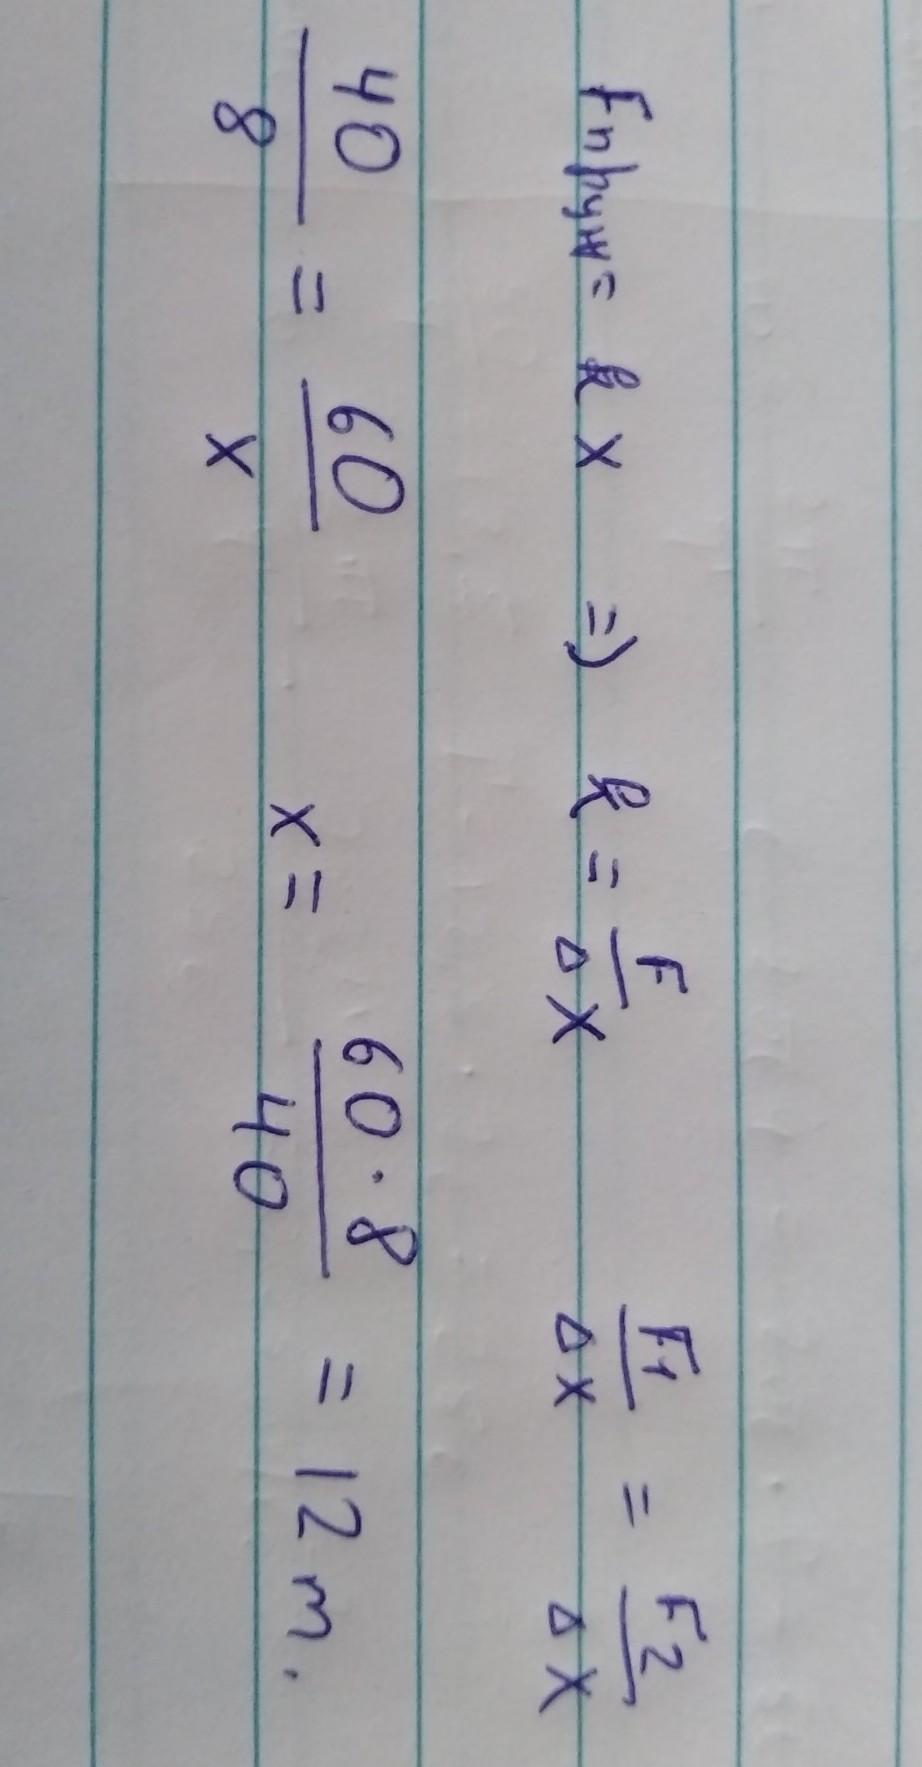 Fпруж = k x => k = F/Δx F1/Δx = F2/Δx
40/8 = 60/x x = 60·8/40 = 12 m.